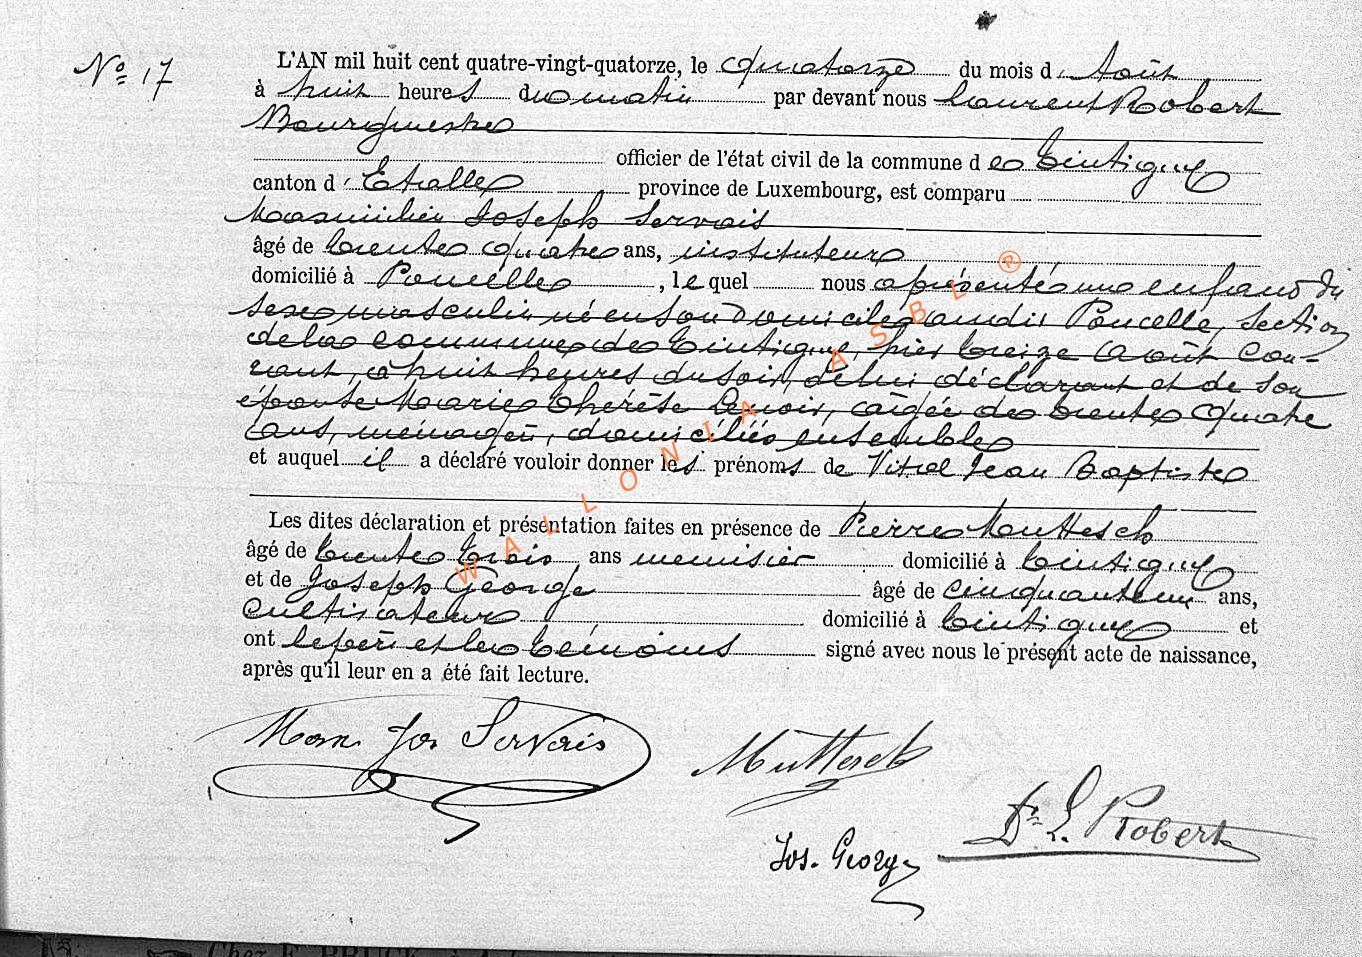 Nº 17
L'AN mil huit cent quatre-vingt-quatorze, le quatorze du mois d'Août
à huit heures du matin par devant nous Laurent Robert
Bourgmestre
officier de l'état civil de la commune de Tintigny
canton d'Etalle province de Luxembourg, est comparu
Maximilien Joseph Servais
âgé de trente quatre ans, instituteur
domicilié à Poncelle, lequel nous a présenté un enfant du
sexe masculin né en son domicile audit Poncelle, section
de la commune de Tintigny, hier treize Août cou-
rant, à huit heures du soir, de lui déclarant et de son
épouse Marie Thérèse Lenoir, âgée de trente quatre
ans, ménagère, domiciliés ensemble
et auquel il a déclaré vouloir donner les prénoms de Vital Jean Baptiste
Les dites déclaration et présentation faites en présence de Pierre Muttesch
âgé de trente trois ans menuisier domicilié à Tintigny
et de Joseph George âgé de cinquante un ans,
cultivateur domicilié à Tintigny et
ont le père et les témoins signé avec nous le présent acte de naissance,
après qu'il leur en a été fait lecture.
Max Jos Servais
Muttesch
Dr L. Robert
Jos. George
WALLONIA ASBL ®
Chez E. BRUCK, à